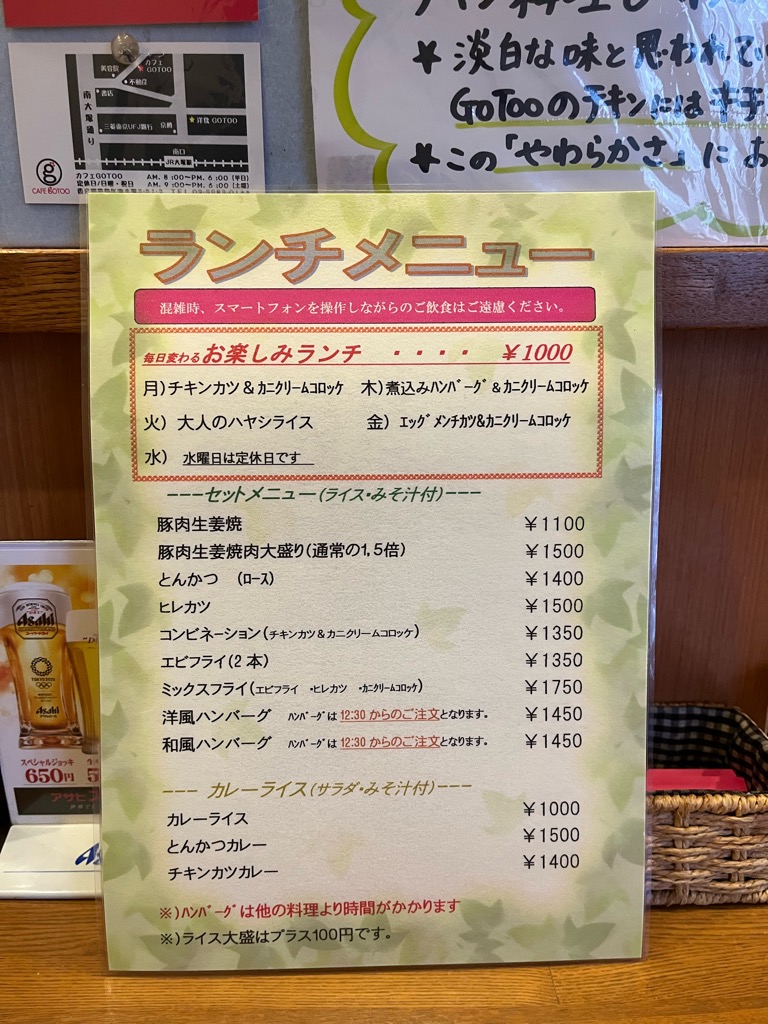 美容院
カフェ
GOTOO
不動産
書店
南大塚通り
三菱東京UFJ銀行
交番
★洋食 GOTOO
南口
JR大塚駅
g
CAFE GOTOO
カフェGOTOO AM. 8:00～PM. 6:00 (平日)
定休日/日曜・祝日 AM. 9:00～PM. 6:00 (土曜)
★淡白な味と思われて
GOTOOのチキンには
★この「やわらかさ」に
ランチメニュー
混雑時、スマートフォンを操作しながらのご飲食はご遠慮ください。
毎日変わるお楽しみランチ ・・・・ ￥1000
月)チキンカツ＆カニクリームコロッケ 木)煮込みハンバーグ＆カニクリームコロッケ
火) 大人のハヤシライス 金) エッグメンチカツ&カニクリームコロッケ
水) 水曜日は定休日です
---セットメニュー(ライス・みそ汁付)---
豚肉生姜焼 ￥1100
豚肉生姜焼肉大盛り(通常の1,5倍) ￥1500
とんかつ (ロース) ￥1400
ヒレカツ ￥1500
コンビネーション(チキンカツ＆カニクリームコロッケ) ￥1350
エビフライ(2本) ￥1350
ミックスフライ(エビフライ ・ヒレカツ ・カニクリームコロッケ) ￥1750
洋風ハンバーグ ハンバーグは 12:30 からのご注文となります。 ￥1450
和風ハンバーグ ハンバーグは 12:30 からのご注文となります。 ￥1450
--- カレーライス(サラダ・みそ汁付)---
カレーライス ￥1000
とんかつカレー ￥1500
チキンカツカレー ￥1400
※)ハンバーグは他の料理より時間がかかります
※)ライス大盛はプラス100円です。
Asahi
TOKYO 2020
Asahi
スペシャルジョッキ
650円
アサヒ